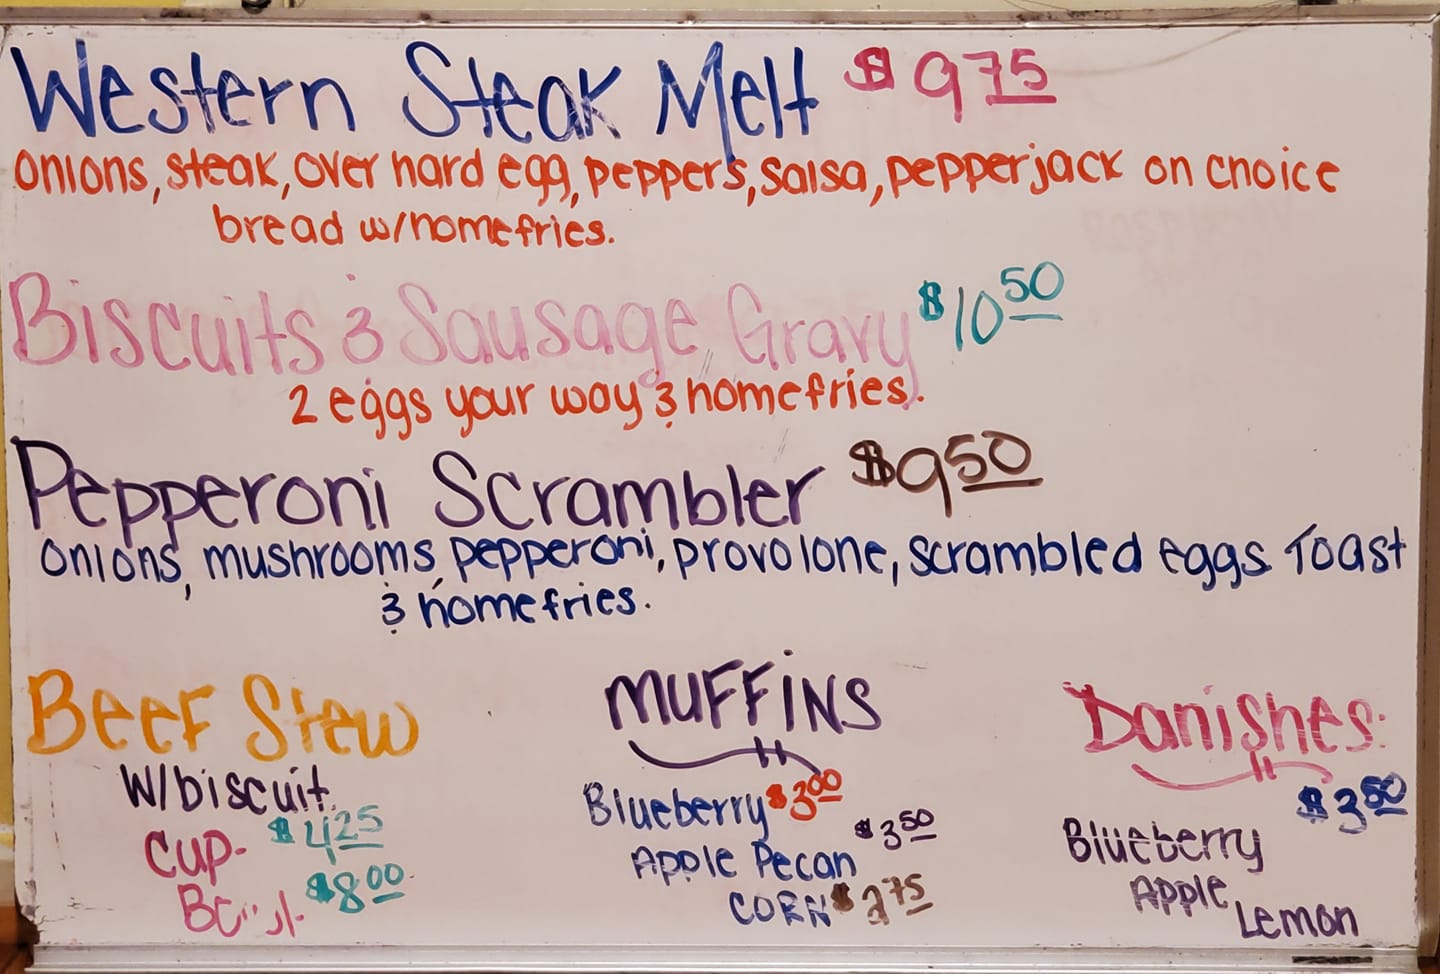 Western Steak Melt $9 75
onions, steak, over hard egg, peppers, salsa, pepperjack on choice
bread w/homefries.
Biscuits & Sausage Gravy $10 50
2 eggs your way & homefries.
Pepperoni Scrambler $9 50
onions, mushrooms, pepperoni, provolone, scrambled eggs. Toast
& homefries.
Beef Stew
w/biscuit
Cup- $4 25
$8 00
MUFFiNS
Blueberry $3 00
Apple Pecan $3 50
CORN $2 75
Danishes:
$3 50
Blueberry
Apple
Lemon